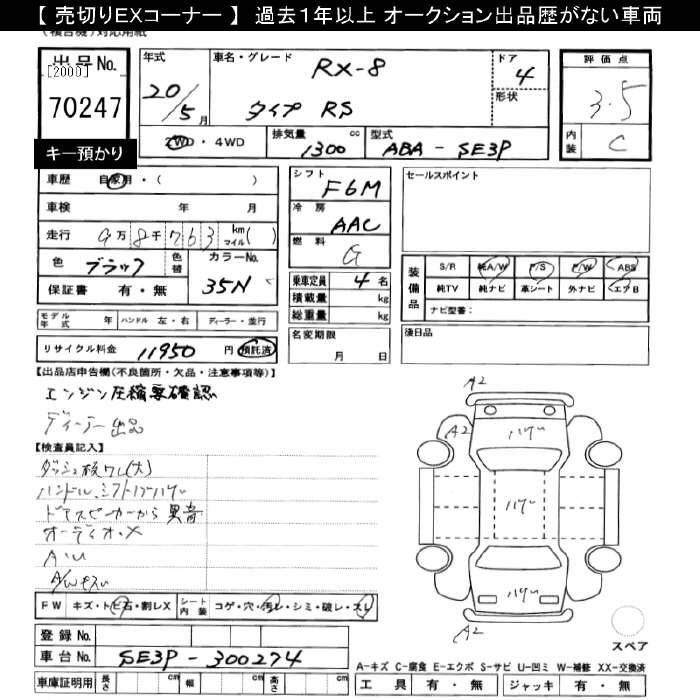 【 売切りEXコーナー 】 過去１年以上 オークション出品歴がない車両
出 品 No.
[2000]
70247
キー預かり
年式
20/5月
車名・グレード
RX-8
タイプ RS
ドア
4
形状
評価点
3.5
内装
C
2WD・4WD
排気量
1300 cc
型式
ABA - SE3P
車歴 自家用・( )
車検 年 月
走行 9万8千763 km マイル( )
色 ブラック 色替 カラーNo. 35N
保証書 有・無
シフト F6M
冷房 AAC
燃料 G
乗車定員 4名
積載量 kg
総重量 kg
セールスポイント
装備品
S/R 純A/W P/S P/W ABS
純TV 純ナビ 革シート 外ナビ エアB
ナビ型番：
モデル年式 年 ハンドル 左・右 ディーラー・並行
リサイクル料金 11950 円 預託済
名変期限
月 日
後日品
【出品店申告欄(不良箇所・欠品・注意事項等)】
エンジン圧縮要確認
ディーラー出品
【検査員記入】
ダッシュ板ワレ(大)
ハンドル、シフトノブハゲ
ドアスピーカーから異音
オーディオ・X
A・U
A/Wキズ
FW キズ・トビ石・割レX シート内装 コゲ・穴・汚レ・シミ・破レ・スレ
A2
A2
ハゲ
ハゲ
ハゲ
A2
スペア
登録 No.
車台 No. SE3P - 300274
車庫証明用 長さ cm 幅 cm 高さ cm
A-キズ C-腐食 E-エクボ S-サビ U-凹ミ W-補修 XX-交換済
工具 有・無 ジャッキ 有・無